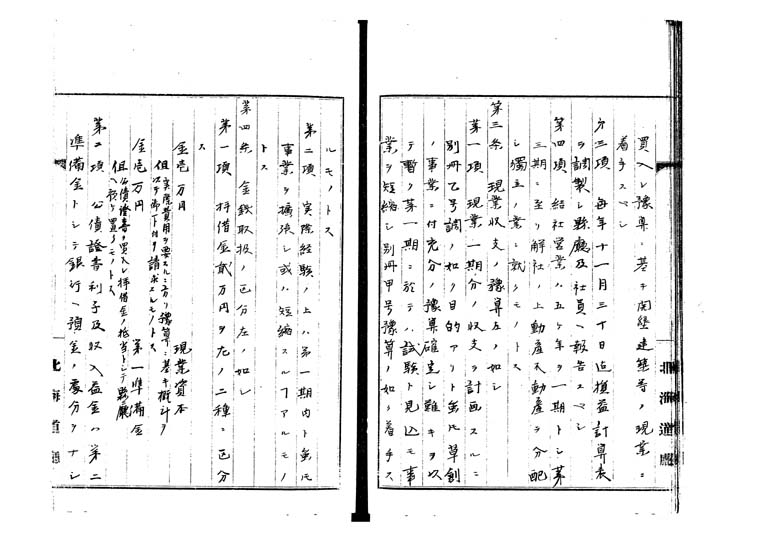 買入レ豫算ニ基キ開墾建築等ノ現業ニ
着手スベシ
第三項 每年十一月三十日迄損益計算表
ヲ調製シ縣廳及社員ヘ報告スベシ
第四項 結社営業ハ五ケ年ヲ一期トシ第
三期ニ至リ解社ノ上動産不動産ヲ分配
シ獨立ノ業ニ就クモノトス
第三条 現業収支ノ豫算左ノ如シ
第一項 現業一期分ノ收支ヲ計画スルニ
別冊乙号調ノ如ク目的アリト雖モ草創
ノ事業ニ付充分ノ豫算確定シ難キヲ以
テ暫ク第一期ニ於テハ試験ト見込ミ事
業ヲ短縮シ別冊甲号豫算ノ如ク着手ス
ルモノトス
第二項 実際経験ノ上ハ第一期内ト雖モ
事業ヲ擴張シ或ハ短縮スルヿアルモノ
トス
第四条 金銭取扱ノ区分左ノ如シ
第一項 拝借金貳万円ヲ左ノ二種ニ区分
ス
金壱万円 現業資本
但実際費用ヲ要スルニ方リ豫算ニ基キ概計ヲ
以テ御下付ヲ請求スルモノトス
金壱万円 第一準備金
但公債證書ヲ買入レ拝借金ノ抵当トシテ縣廳
ヘ預ケ置クモノトス
第二項 公債證書利子及収入益金ハ第二
準備金トシテ銀行ヘ預金ノ處分ヲナシ
北海道廳
北海道廳